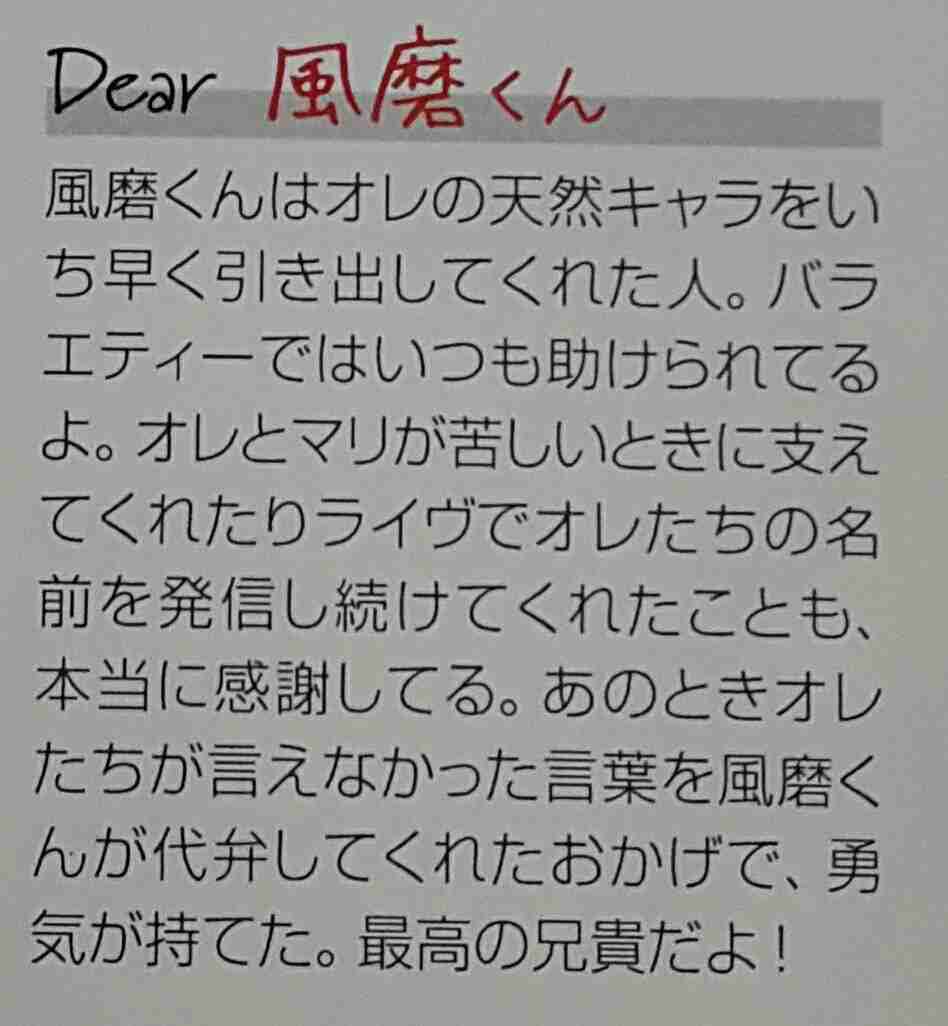 Dear 風磨くん
風磨くんはオレの天然キャラをい
ち早く引き出してくれた人。バラ
エティーではいつも助けられてる
よ。オレとマリが苦しいときに支え
てくれたりライヴでオレたちの名
前を発信し続けてくれたことも、
本当に感謝してる。あのときオレ
たちが言えなかった言葉を風磨く
んが代弁してくれたおかげで、勇
気が持てた。最高の兄貴だよ！